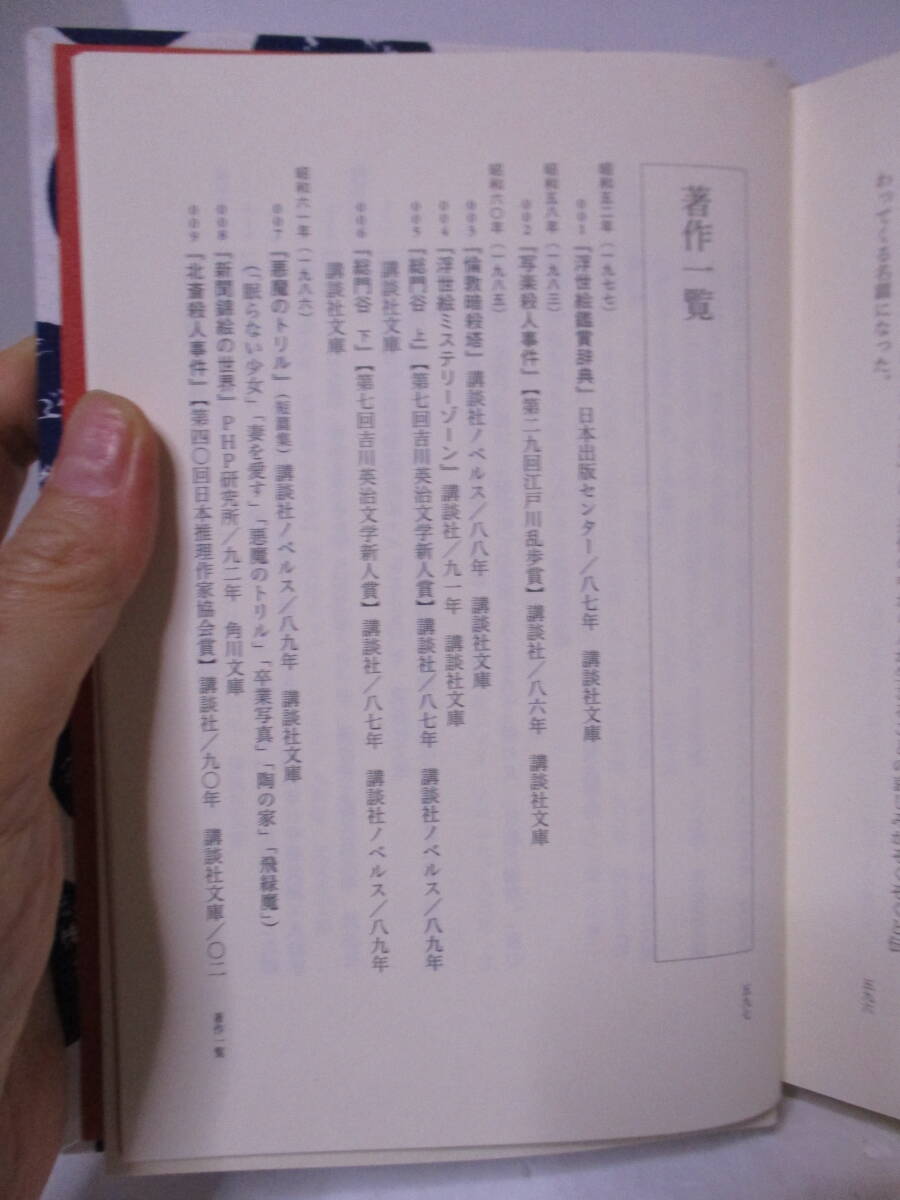 わってくる名篇になった。
三九六
著作一覧
昭和五二年（一九七七）
001『浮世絵鑑賞辞典』日本出版センター／八七年　講談社文庫
昭和五八年（一九八三）
002『写楽殺人事件』【第二九回江戸川乱歩賞】講談社／八六年　講談社文庫
昭和六〇年（一九八五）
003『倫敦暗殺塔』講談社ノベルス／八八年　講談社文庫
004『浮世絵ミステリーゾーン』講談社／九一年　講談社文庫
005『総門谷　上』【第七回吉川英治文学新人賞】講談社／八七年　講談社ノベルス／八九年
講談社文庫
006『総門谷　下』【第七回吉川英治文学新人賞】講談社／八七年　講談社ノベルス／八九年
講談社文庫
昭和六一年（一九八六）
007『悪魔のトリル』（短篇集）講談社ノベルス／八九年　講談社文庫
（「眠らない少女」「妻を愛す」「悪魔のトリル」「卒業写真」「陶の家」「飛縁魔」）
008『新聞錦絵の世界』PHP研究所／九二年　角川文庫
009『北斎殺人事件』【第四〇回日本推理作家協会賞】講談社／九〇年　講談社文庫／〇二
著作一覧